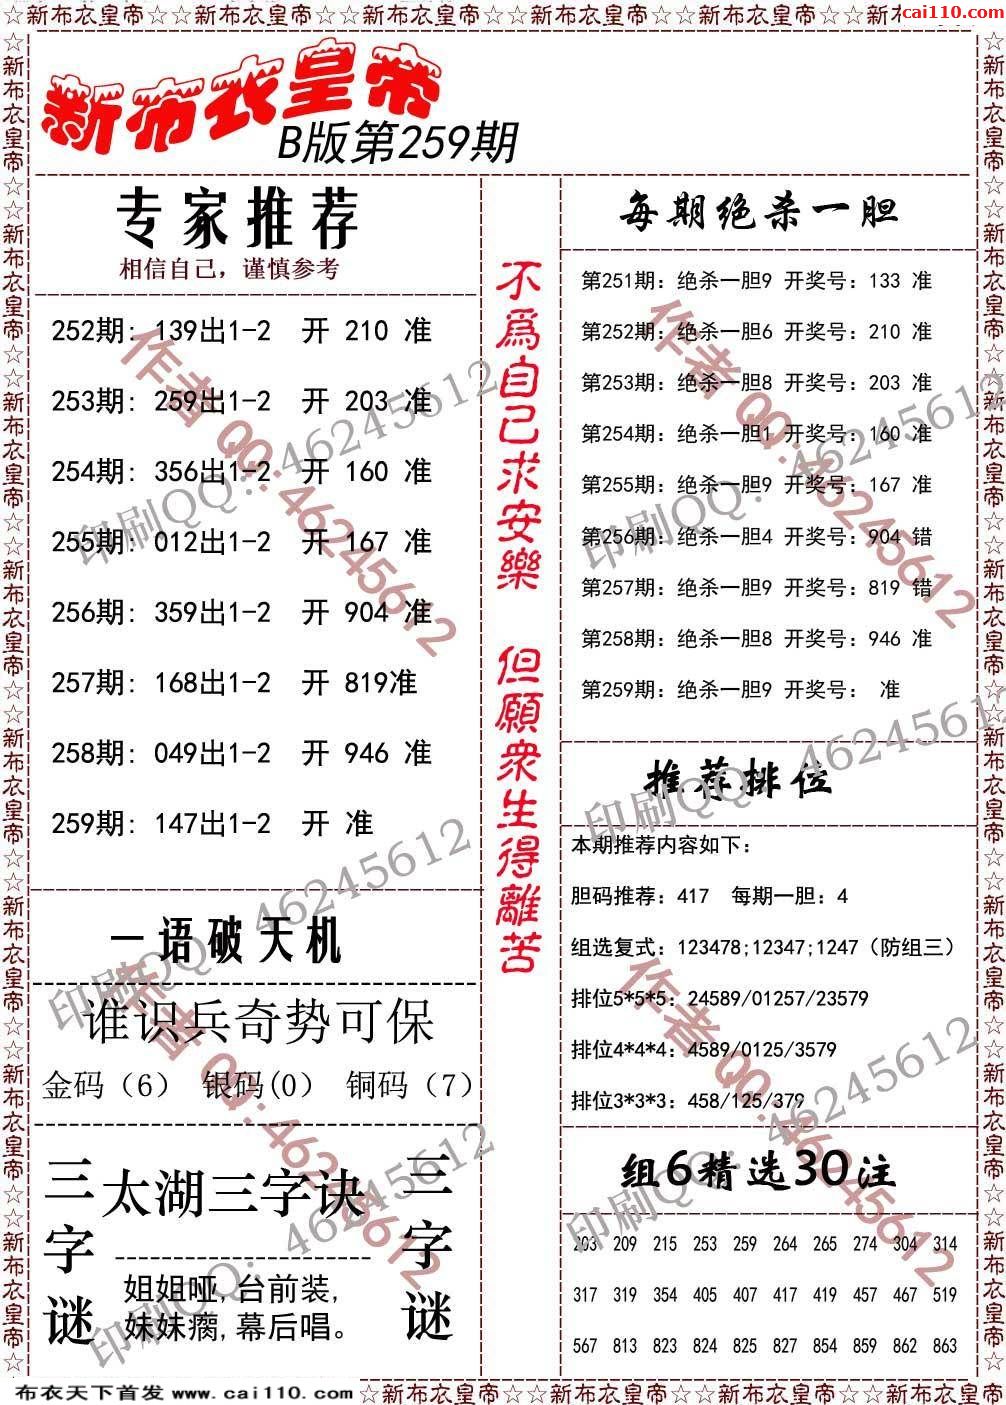 ☆新布衣皇帝☆☆新布衣皇帝☆☆新布衣皇帝☆☆新布衣皇帝☆☆新布衣皇帝☆☆新布衣皇帝☆☆新
cai110.com
新布衣皇帝
B版第259期
专家推荐
相信自己，谨慎参考
252期: 139出1-2 开 210 准
253期: 259出1-2 开 203 准
254期: 356出1-2 开 160 准
255期: 012出1-2 开 167 准
256期: 359出1-2 开 904 准
257期: 168出1-2 开 819准
258期: 049出1-2 开 946 准
259期: 147出1-2 开 准
一语破天机
谁识兵奇势可保
金码（6） 银码(0） 铜码（7）
三字谜
太湖三字诀
姐姐哑,台前装,
妹妹瘸,幕后唱。
三字谜
不爲自己求安樂 但願衆生得離苦
每期绝杀一胆
第251期: 绝杀一胆9 开奖号: 133 准
第252期: 绝杀一胆6 开奖号: 210 准
第253期: 绝杀一胆8 开奖号: 203 准
第254期: 绝杀一胆1 开奖号: 160 准
第255期: 绝杀一胆9 开奖号: 167 准
第256期: 绝杀一胆4 开奖号: 904 错
第257期: 绝杀一胆9 开奖号: 819 错
第258期: 绝杀一胆8 开奖号: 946 准
第259期: 绝杀一胆9 开奖号: 准
推荐排位
本期推荐内容如下:
胆码推荐: 417 每期一胆: 4
组选复式: 123478;12347;1247（防组三）
排位5*5*5: 24589/01257/23579
排位4*4*4: 4589/0125/3579
排位3*3*3: 458/125/379
组6精选30注
203 209 215 253 259 264 265 274 304 314
317 319 354 405 407 417 419 457 467 519
567 813 823 824 825 827 854 859 862 863
作者 QQ:46245612
印刷QQ: 46245612
作者 QQ:46245612
印刷QQ: 46245612
印刷QQ: 46245612
印刷QQ: 46245612
作者 QQ:46245612
印刷QQ: 46245612
作者 QQ:46245612
印刷QQ: 46245612
☆新布衣皇帝☆☆新布衣皇帝☆☆新布衣皇帝☆☆新布衣皇帝☆☆新布衣皇帝☆☆新布衣皇帝☆☆新布衣皇帝☆☆新布衣皇帝☆
☆新布衣皇帝☆☆新布衣皇帝☆☆新布衣皇帝☆☆新布衣皇帝☆☆新布衣皇帝☆☆新布衣皇帝☆☆新布衣皇帝☆☆新布衣皇帝☆
布衣天下首发 www.cai110.com
☆新布衣皇帝☆☆新布衣皇帝☆☆新布衣皇帝☆☆新布衣皇帝☆